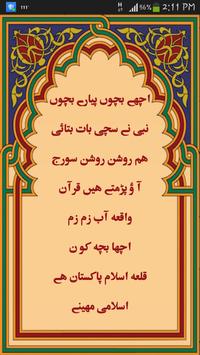 111
H
2:11 PM
اچھے بچوں پیارے بچوں
نبی نے سچی بات بتائی
هم روشن روشن سورج
آ ؤ پڑھتے هیں قرآن
واقعه آب زم زم
اچها بچه کو ن
قلعه اسلام پاکستان هے
اسلامی مهینے